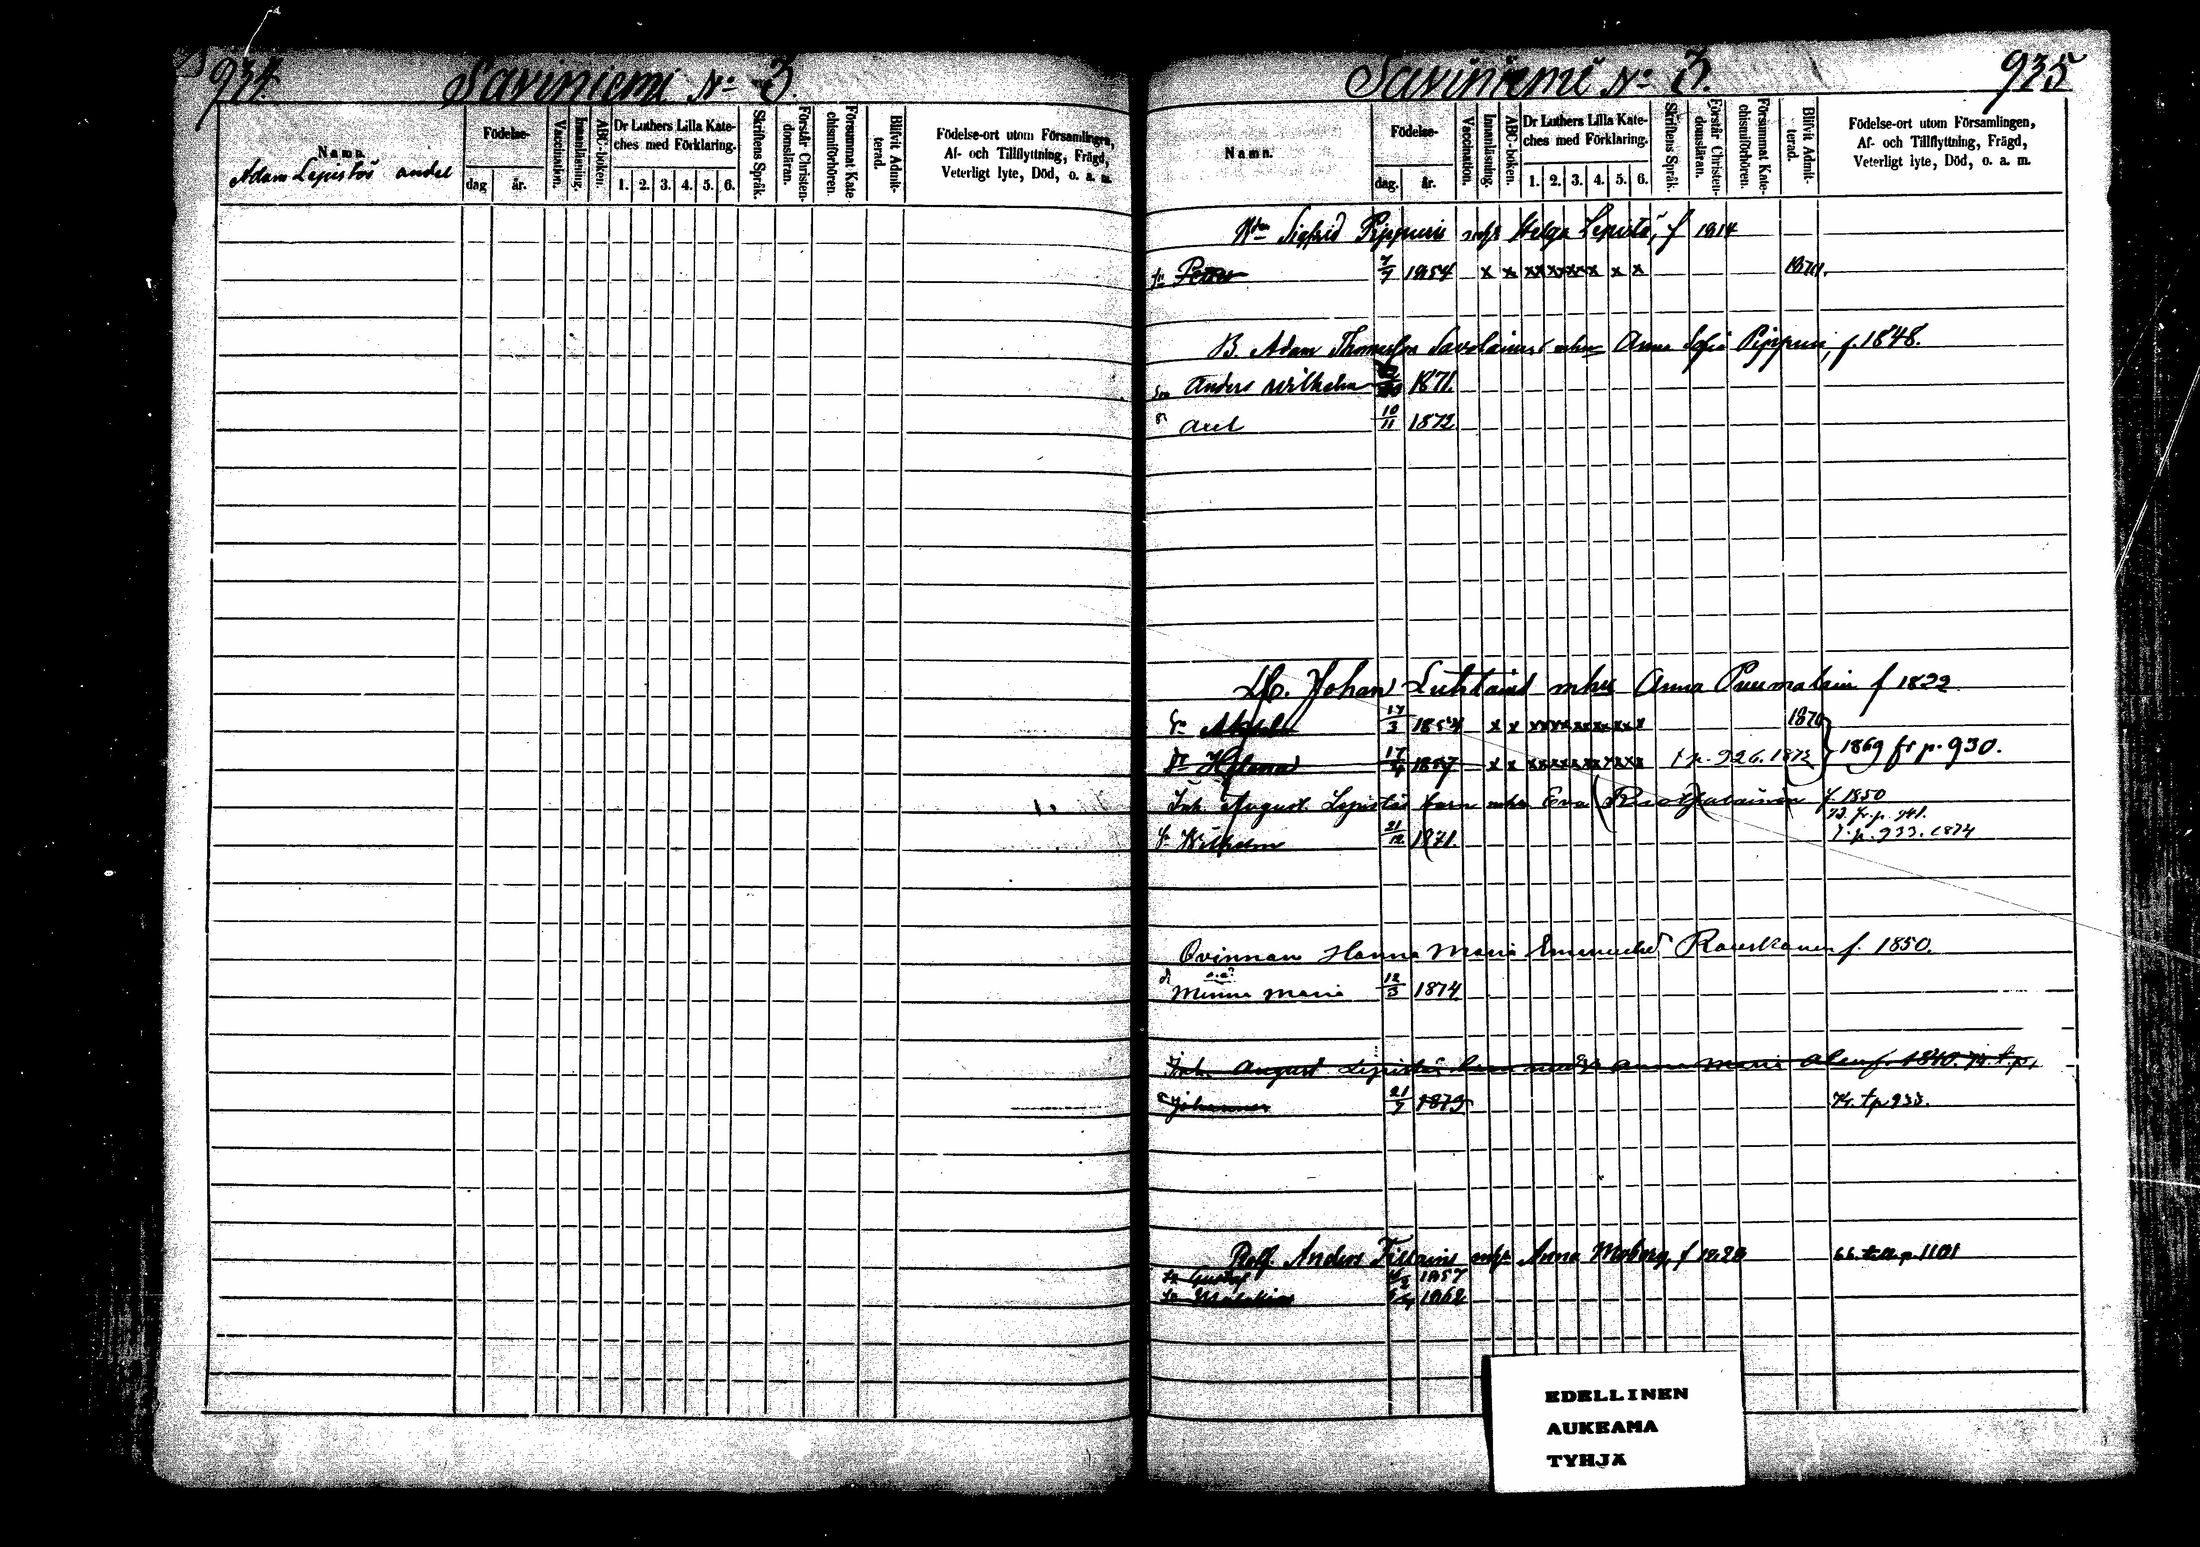 934. Saviniemi No 3.
Namn.
Födelse-
dag år.
Vaccination.
Innanläsning.
ABC-boken.
Dr Luthers Lilla Kate-
ches med Förklaring.
1. 2. 3. 4. 5. 6.
Skriftens Språk.
Förstår Christen-
domsläran.
Försummat Kate
chismiförhören.
Blifvit Admit-
terad.
Födelse-ort utom Församlingen,
Af- och Tillflyttning, Frägd,
Veterligt lyte, Död, o. a. m.
Adam Lepistös andel
Saviniemi No 3. 935
Namn.
Födelse-
dag. år.
Vaccination.
Innanläsning.
ABC-boken.
Dr Luthers Lilla Kate-
ches med Förklaring.
1. 2. 3. 4. 5. 6.
Skriftens Språk.
Förstår Christen-
domsläran.
Försummat Kate-
chismiförhören.
Blifvit Admit-
terad.
Födelse-ort utom Församlingen,
Af- och Tillflyttning, Frägd,
Veterligt lyte, Död, o. a. m.
Sigfrid Pippuri Helga Lepistö, f 1814
Petter 7/7 1854 x x x x x x x x x x
B. Adam Thomasson Savolainen mhu Anna Sofia Pippuri, f. 1848.
son Anders Wilhelm 1871.
Axel 10/11 1872
Johan Luhtaind mhu Anna Puumalain f 1822
17/3 1854 x x x x x x x x x x 1870
Dr Helena 17/4 1857 x x x x x x x x x x t p. 926. 1873 1869 fr p. 930.
Inh. August Lepistös barn mhu Eva f. 1850
73. fr. p. 941.
Sn Wilhelm 21/12 1871. t. p. 933. 1874
Qvinnan Hanna Maria Rouskanen f. 1850.
o.ä.
dr Minna Maria 12/3 1874
Inh. August Lepistös barn med Anna Maria f. 1840. 74. t. p.
Johannes 21/7 1873 74. t p 933.
Anders mhu Anna Moberg, f 1820 66. p 1101
Sn Gustaf 1857
Sn 1862
EDELLINEN
AUKEAMA
TYHJÄ